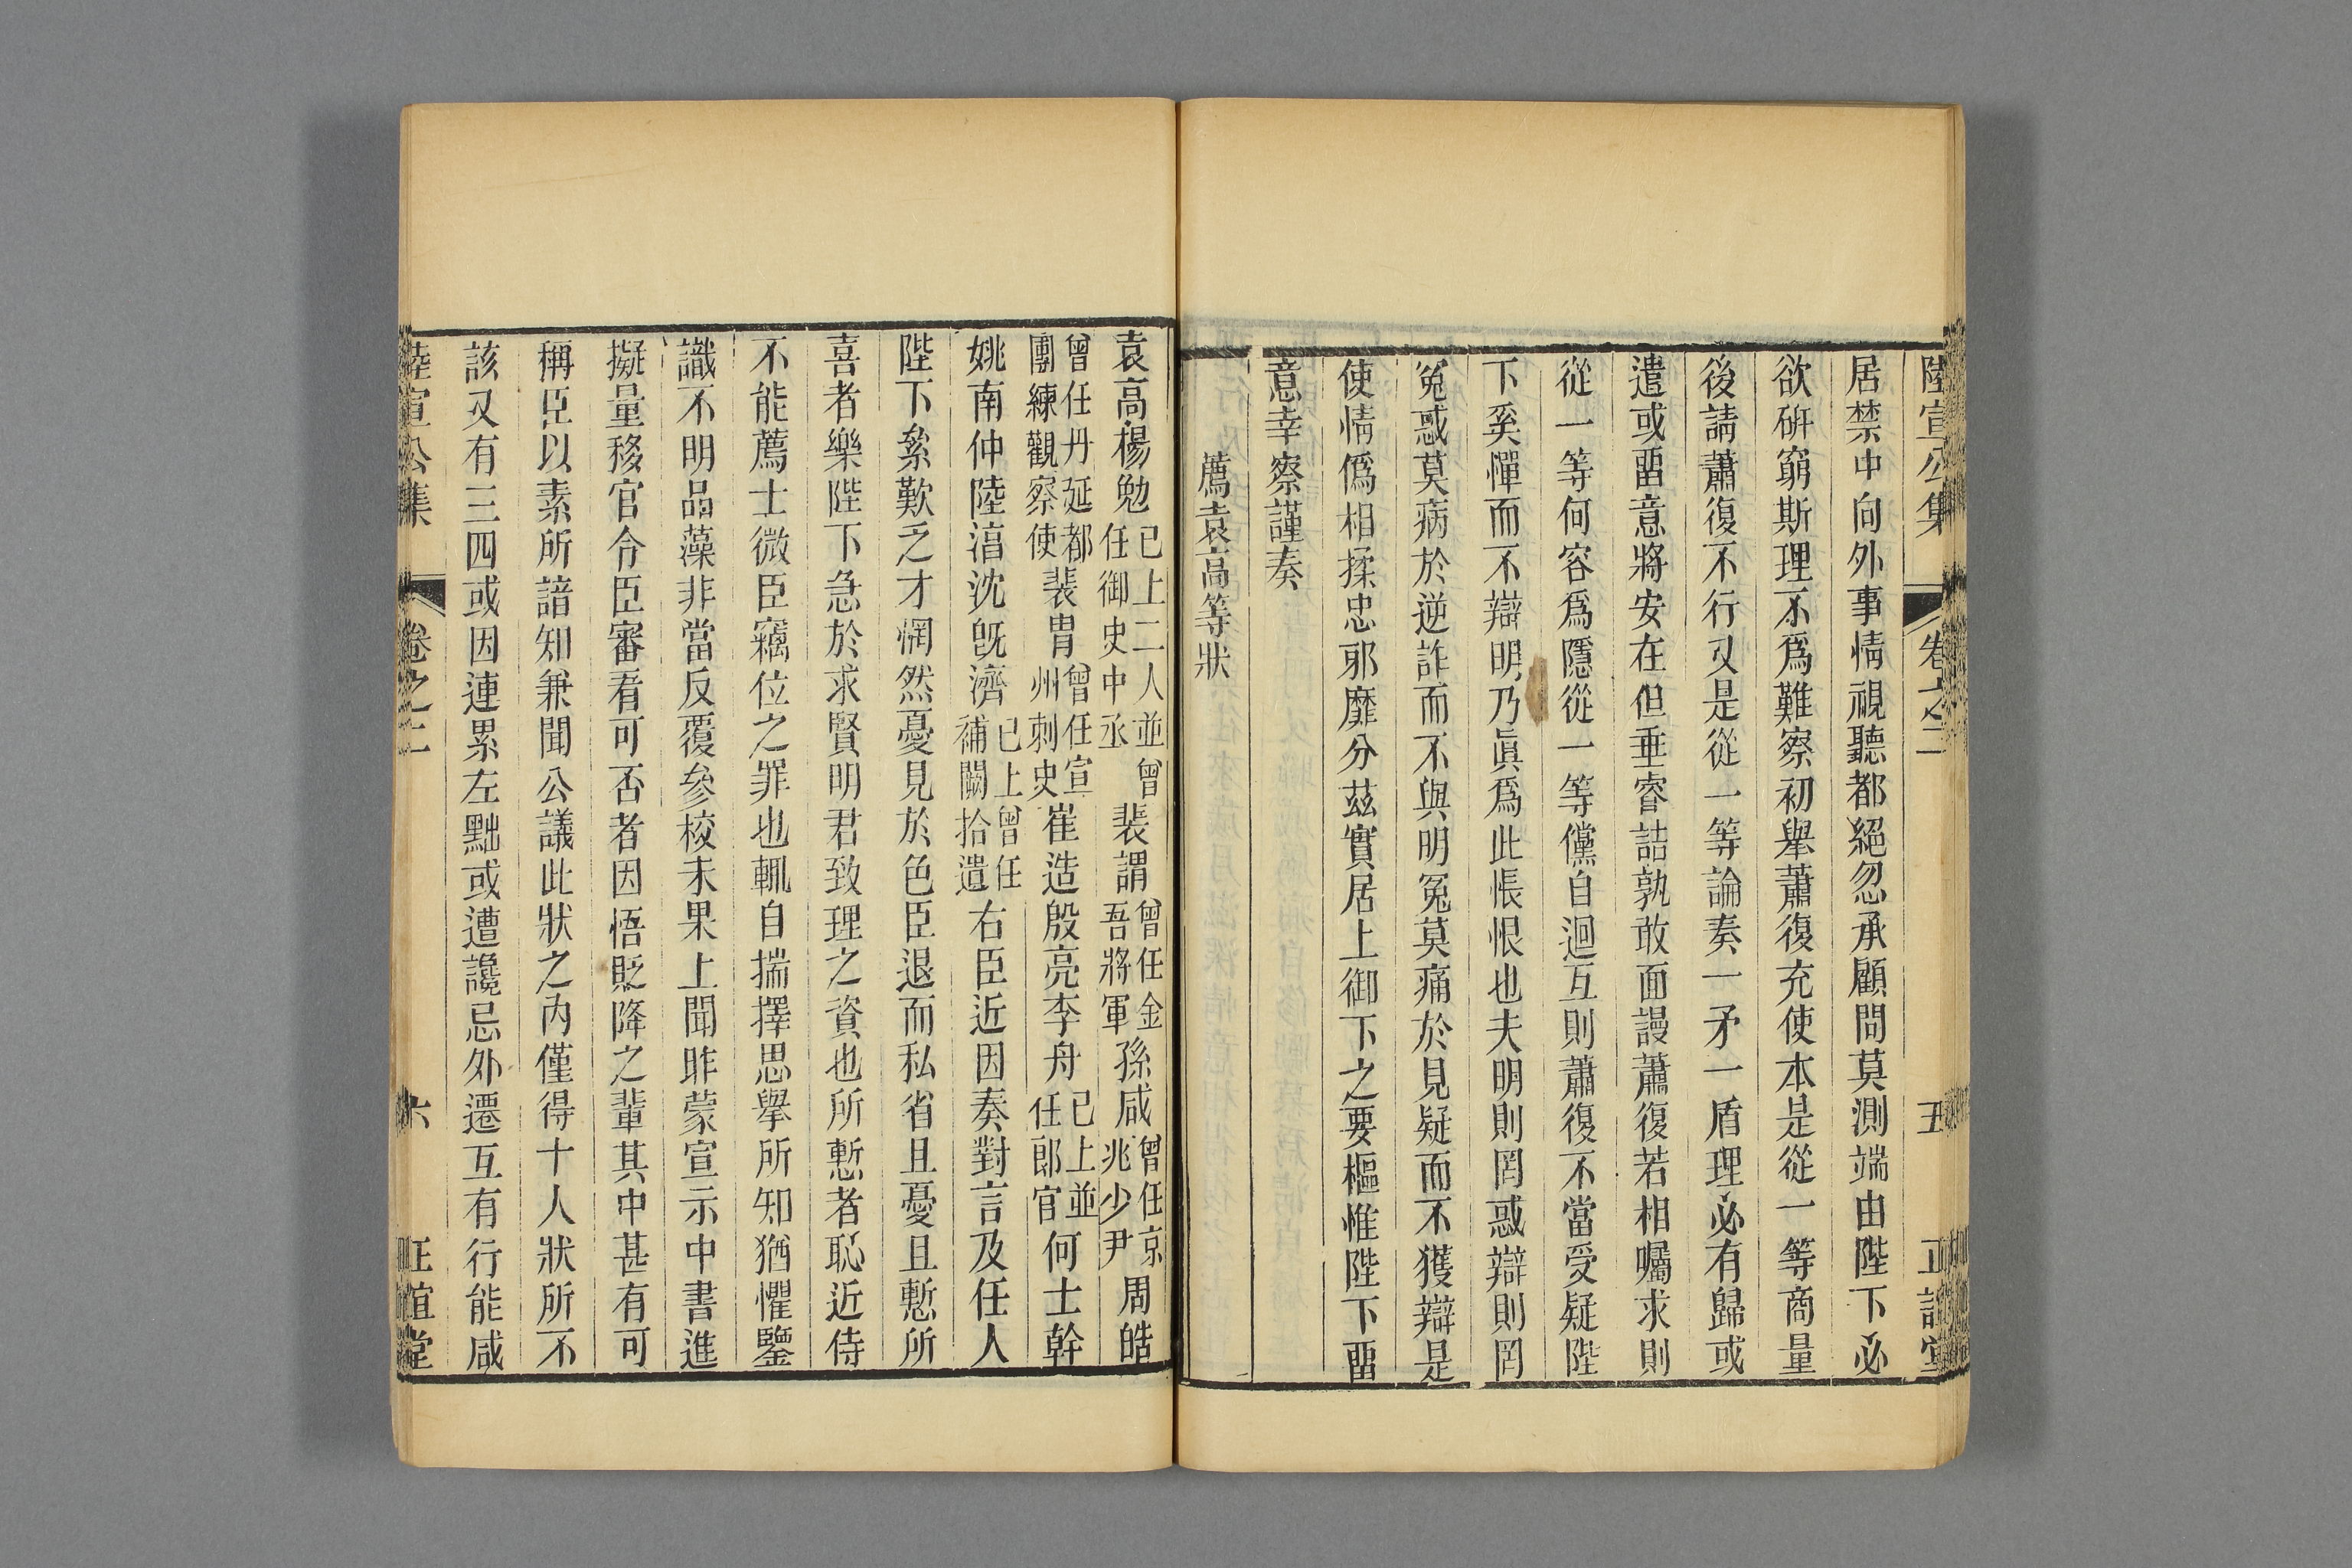 陸宣公集 卷之二 五 正誼堂
居禁中向外事情視聽都絕忽承顧問莫測端由陛下必
欲硏窮斯理不爲難察初舉蕭復充使本是從一等商量
後請蕭復不行又是從一等論奏一矛一盾理必有歸或
遣或畱意將安在但垂睿詰孰敢面謾蕭復若相囑求則
從一等何容爲隱從一等儻自迴互則蕭復不當受疑陛
下奚憚而不辯明乃眞爲此悵恨也夫明則罔惑辯則罔
冤惑莫病於逆詐而不與明冤莫痛於見疑而不獲辯是
使情僞相揉忠邪靡分茲實居上御下之要樞惟陛下畱
意幸察謹奏
薦袁高等狀
袁高楊勉已上二人並曾任御史中丞裴謂曾任金吾將軍孫咸曾任京兆少尹周皓
曾任丹延都團練觀察使裴胄曾任宣州刺史崔造殷亮李舟已上並任郎官何士幹
姚南仲陸淯沈旣濟已上曾任補闕拾遺右臣近因奏對言及任人
陛下絫歎乏才惘然憂見於色臣退而私省且憂且慙所
喜者樂陛下急於求賢明君致理之資也所慙者恥近侍
不能薦士微臣竊位之罪也輒自揣擇思舉所知猶懼鑒
識不明品藻非當反覆參校未果上聞昨蒙宣示中書進
擬量移官令臣審看可否者因悟貶降之輩其中甚有可
稱臣以素所諳知兼聞公議此狀之內僅得十人狀所不
該又有三四或因連累左黜或遭讒忌外遷互有行能咸
陸宣公集 卷之二 六 正誼堂